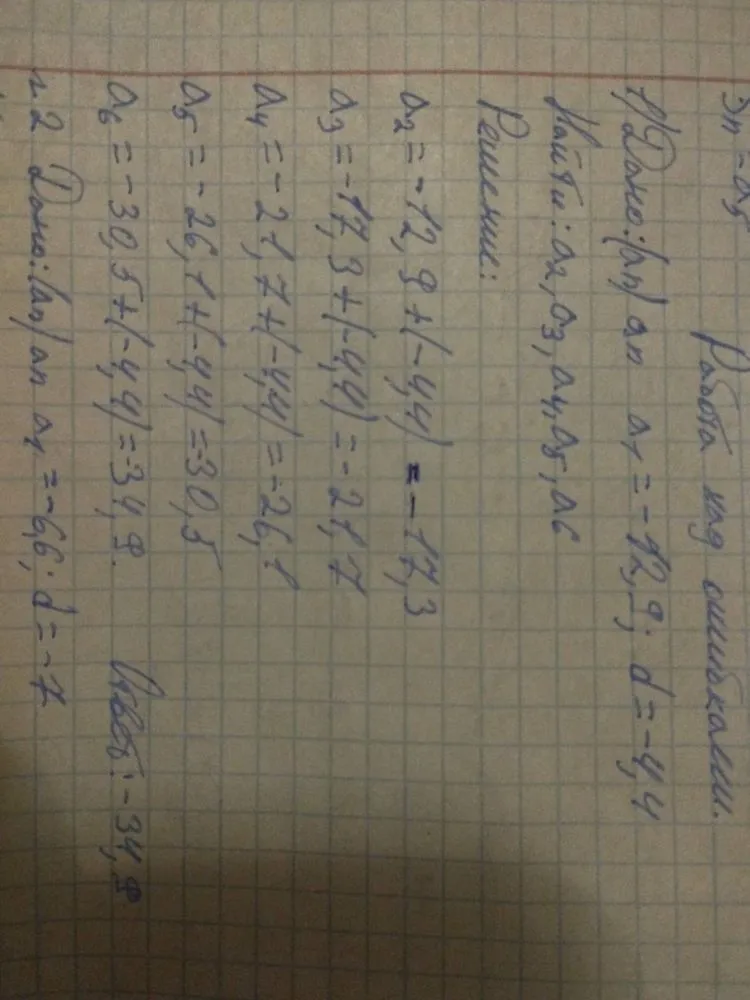 Зп - а5
Работа над ошибками.
1) Дано: (an) an a1 = -12,9; d = -4,4
Найти: a2, a3, a4, a5, a6
Решение:
a2 = -12,9 + (-4,4) = -17,3
a3 = -17,3 + (-4,4) = -21,7
a4 = -21,7 + (-4,4) = -26,1
a5 = -26,1 + (-4,4) = -30,5
a6 = -30,5 + (-4,4) = -34,9. Ответ: -34,9
n2 Дано: (an) an a1 = -6,6; d = -7